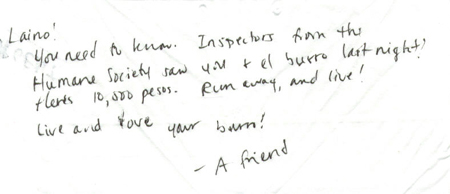 Laino!
You need to know. Inspectors from the
Humane Society saw you + el burro last night!
10,000 pesos. Run away, and live!
Live and love your burro!
- A friend